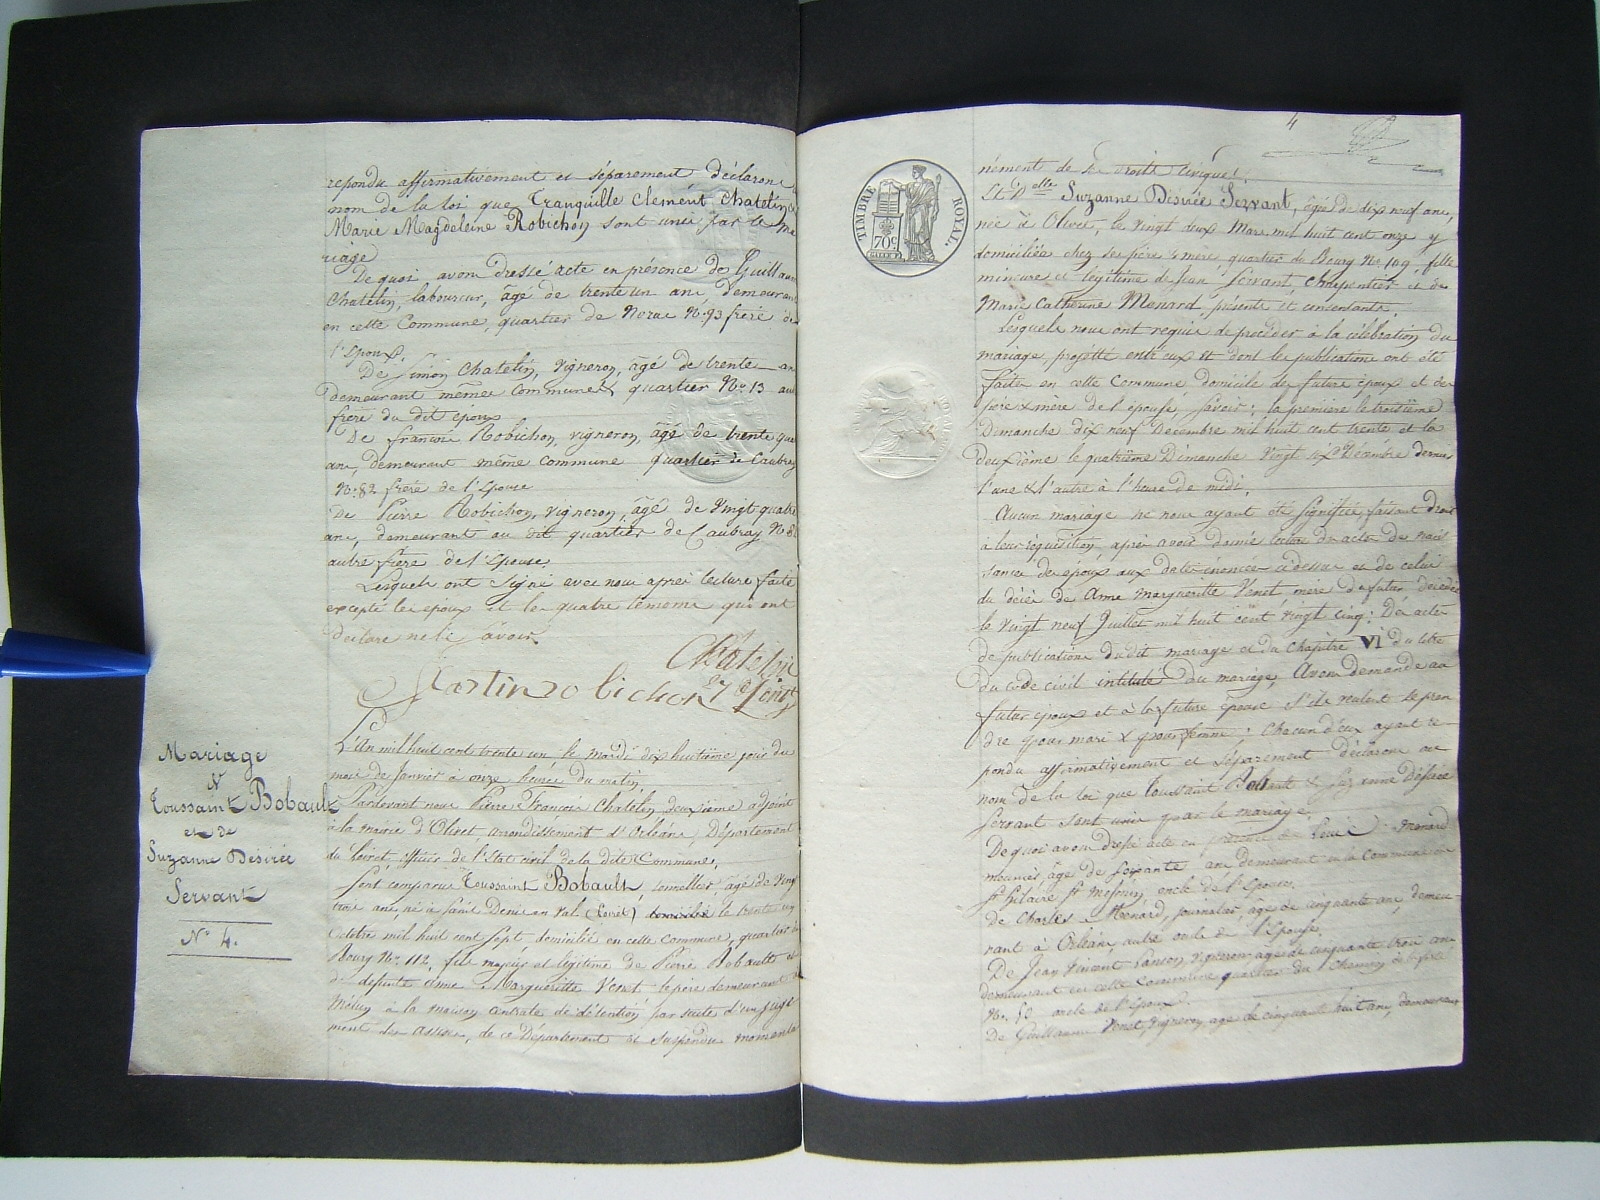 repondu affirmativement et séparement déclarons
nom de la loi que Tranquille Clément Chatelin et
Marie Magdeleine Robichon sont unis par le ma
riage
De quoi avons dressé acte en présence de Guillaume
Chatelin, laboureur, âgé de trente un ans, demeurant
en cette Commune, quartier de Norac No. 93 frère de
l'Epoux.
De Simon Chatelin, vigneron, âgé de trente ans
demeurant même commune quartier No. 13 au
frère du dit epoux
De françois Robichon, vigneron, âgé de trente
ans, demeurant même commune quartier de Caubray
No. 82 frère de l'Epouse
De Pierre Robichon, vigneron, âgé de vingt quatre
ans, demeurant au dit quartier de Caubray No. 82
autre frère de l'Epouse,
Lesquels ont signé avec nous après lecture faite
excepté les epoux et les quatre témoins qui ont
declare ne le savoir
Chatelin
Martin robichon
Mariage
Toussaint Bobault
et de
Suzanne Désirée
Servant
N° 4.
L'An mil huit cent trente un le mardi dix huitième jour du
mois de Janvier à onze heures du matin,
Pardevant nous Pierre François Chatelin deuxième adjoint
à la mairie d'Olivet, arrondissement d'Orléans, Département
du Loiret, officier de l'Etat civil de la dite Commune,
Sont comparus Toussaint Bobault, tonnellier, âgé de vingt
trois ans, né à Saint Denis en Val (Loiret) domicilié le trente un
octobre mil huit cent sept domicilié en cette commune, quartier du
Bourg No. 112, fils majeur et légitime de Pierre Bobault et
de défunte Anne Marguerite Venet le père demeurant à
Melun à la maison centrale de détention par suite d'un juge
ment des assises, de ce Département et suspendu momenta
4
TIMBRE ROYAL.
70c.
nément de ses droits civiques.
Et Delle Suzanne Désirée Servant, âgée de dix neuf ans,
née à Olivet, le vingt deux Mars mil huit cent onze y
domiciliée chez ses père & mère quartier du Bourg No. 109, fille
mineure et légitime de Jean Servant, charpentier et de
Marie Catherine Menard, présents et consentants.
Lesquels nous ont requis de procéder à la célébration du
mariage, projetté entre eux et dont les publications ont été
faites en cette Commune domicile des futurs époux et des
père & mère de l'épouse, Savoir: la première le troisième
Dimanche dix neuf Décembre mil huit cent trente et la
deuxième le quatrième Dimanche vingt six Décembre dernier
l'une & l'autre à l'heure de midi.
Aucun mariage ne nous ayant été signifié, faisant droit
à leur réquisition, après avoir donné lecture des actes de nais
sance des époux aux dates énoncées ci dessus et de celui
du décès de Anne Marguerite Venet, mère du futur décédée
le vingt neuf Juillet mil huit cent vingt cinq: Des actes
de publications du dit mariage et du Chapitre VI du titre
du Code civil intitulé du mariage, Avons demandé au
futur époux et à la future épouse s'ils veulent se pren
dre pour mari & pour femme; Chacun d'eux ayant re
pondu affirmativement et séparement déclarons au
nom de la loi que Toussaint Bobault & Suzanne Désirée
Servant sont unis par le mariage.
De quoi avons dressé acte en présence de Menard
meunier, âgé de soixante ans demeurant en la commune de
St. hilaire St. Mesmin, oncle de l'Epouse.
De Charles Menard, journalier, âgé de cinquante ans, demeu
rant à Orléans, autre oncle de l'Epouse.
De Jean Vincent Panson, vigneron âgé de cinquante trois ans
demeurant en cette Commune quartier du Chemin
No. 50 oncle de l'époux.
De Guillaume Venet, vigneron, âgé de cinquante huit ans, demeurant